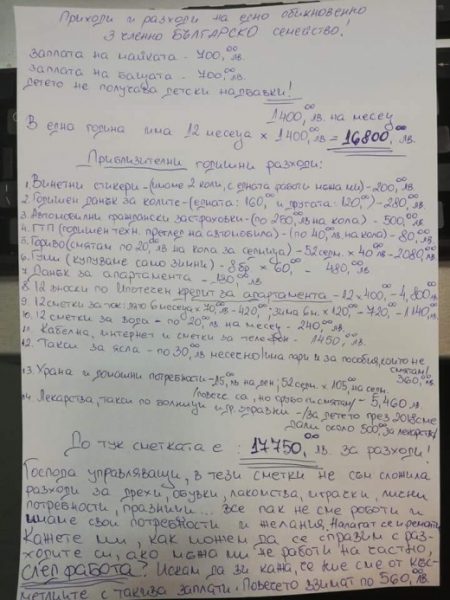 Приходи и разходи на едно обикновено
3 членно БЪЛГАРСКО семейство!
Заплата на майката - 700,00 лв.
Заплата на бащата - 700,00 лв.
детето не получава детски надбавки!
1400,00 лв. на месец
В една година има 12 месеца x 1400,00 лв. = 16800,00 лв.
Приблизителни годишни разходи:
1. Винетни стикери - (имаме 2 коли, с едната работи мъжа ми) - 200,00 лв.
2. Годишен данък за колите - (едната: 160,00 и другата: 120,00) - 280,00 лв.
3. Автомобилни граждански застраховки - (по 250,00 лв на кола) - 500,00 лв.
4. ГТП (годишен техн. преглед на автомобила) - (по 40,00 лв на кола) - 80,00 лв.
5. Гориво (смятам по 20,00 лв на кола за седмица) - 52 седм. x 40 лв - 2080,00 лв
6. Гуми (купуваме само зимни) - 8бр x 60,00 - 480,00 лв.
7. Данък за апартамента - 130,00 лв
8. 12 вноски по Ипотечен кредит за апартамента - 12 x 400,00 - 4,800 лв
9. 12 сметки за ток: лято 6 месеца x 70,00 лв - 420,00; зима 6 м. x 120,00 - 720,00 - 1140,00 лв.
10. 12 сметки за вода - по 20,00 лв на месец - 240,00 лв.
11. Кабелна, интернет и сметки за телефон - 1450,00 лв.
12. Такси за ясла - по 30,00 лв месечно /има пари и за пособия, които не смятам/ 360,00 лв.
13. Храна и домашни потребности - 15,00 лв на ден; 52 седм. x 105,00 лв на седм.
/повече са, но грубо ги смятам/ - 5,460 лв
14. Лекарства, такси по болници и др. управки - /за детето през 2018 сме
дали около 500,00 за лекарства/
До тук сметката е : 17750,00 лв. за разходи!
Господа управляващи, в тези сметки не съм сложила
разходи за дрехи, обувки, лакомства, играчки, лични
потребности, празници... Все пак не сме роботи и
имаме свои потребности и желания. Налагат се и ремонти
Кажете ми, как можем да се справим с раз-
ходите си, ако мъжа ми не работи на частно,
СЛЕД РАБОТА? Искам да ви кажа, че ние сме от къс-
метлиите с такива заплати. Повечето взимат по 560,00 лв.